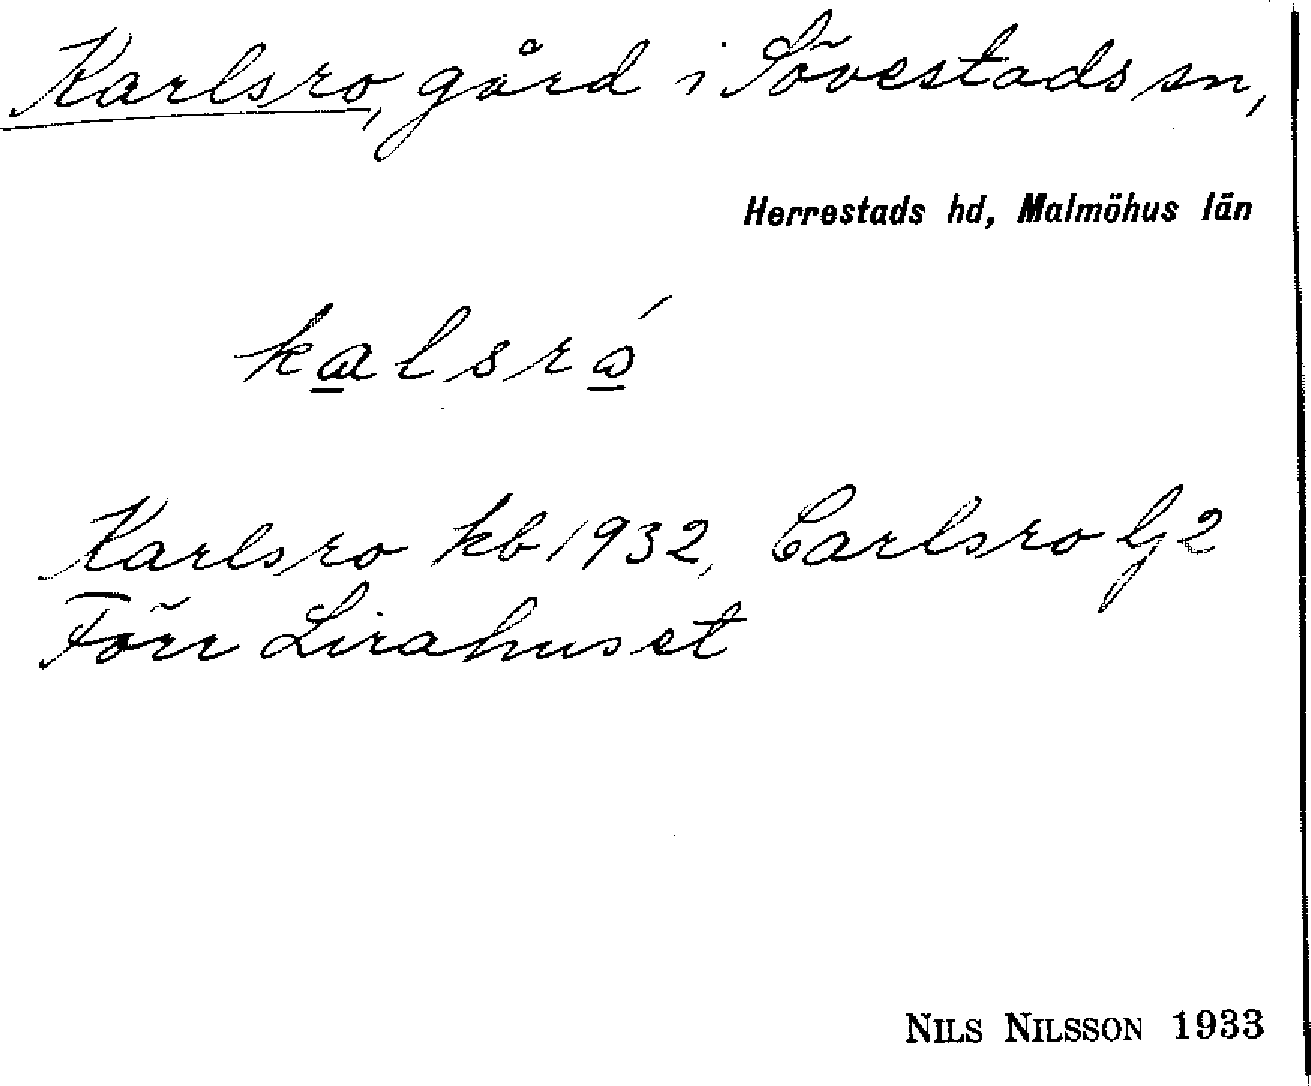 Karlsro, gård i Sövestads sn,
Herrestads hd, Malmöhus län
kalsró
Karlsro kb 1932, Carlsro G2
Förr Lirahuset
NILS NILSSON 1933